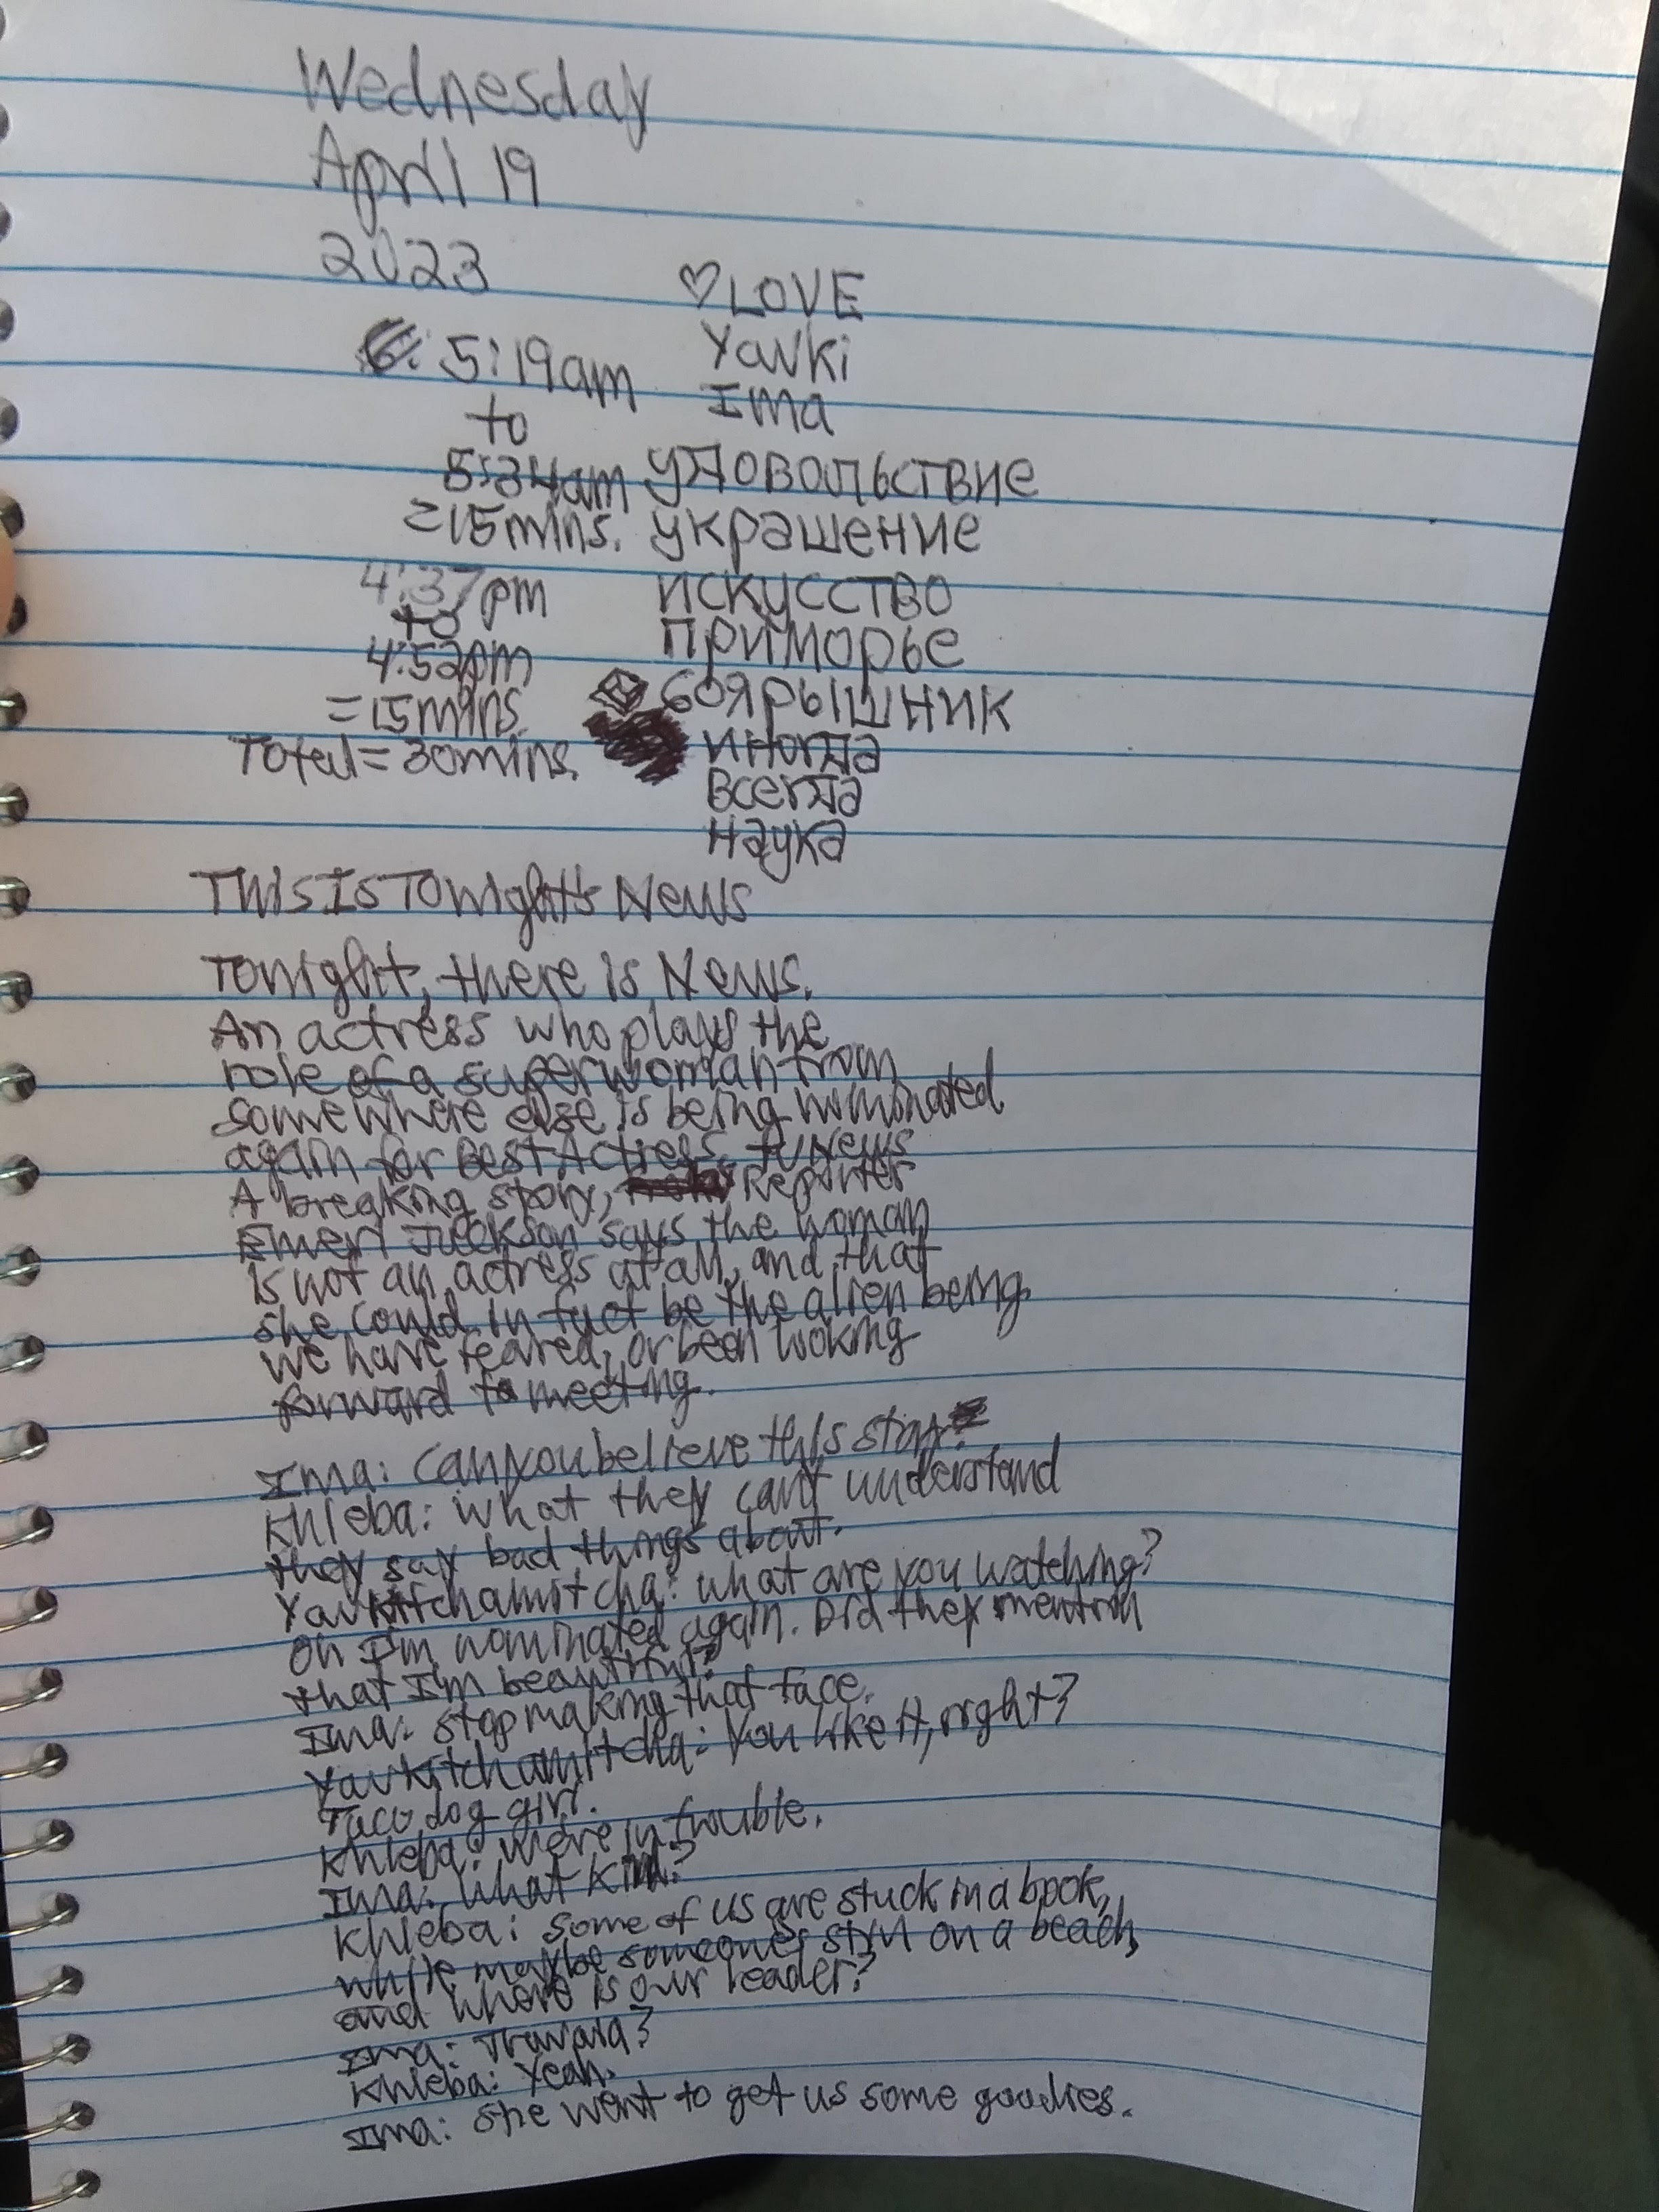 Wednesday
April 19
2023
♡LOVE
Yavki
Ima
5:19am
to
5:34am
=15mins.
4:37pm
to
4:52pm
=15mins.
Total=30mins.
удовольствие
украшение
искусство
приморье
боярышник
иногда
всегда
наука
This Is Tonight's News
Tonight, there is News.
An actress who plays the
role of a superwoman from
somewhere else is being nominated
again for Best Actress.
A breaking story, TV News Reporter
Juckson says the woman
is not an actress at all, and that
she could in fact be the alien being
we have feared, or been looking
forward to meeting.
Ima: Can you believe this story?
Khleba: What they can't understand
they say bad things about.
Yavkitchamitcha: What are you watching?
Oh I'm nominated again. Did they mention
that I'm beautiful?
Ima: Stop making that face.
Yavkitchamitcha: You like it, right?
Taco dog girl.
Khleba: We're in trouble.
Ima: What kind?
Khleba: Some of us are stuck in a book,
while maybe someone's still on a beach,
and where is our leader?
Ima:
Khleba: Yeah.
Ima: She went to get us some goodies.